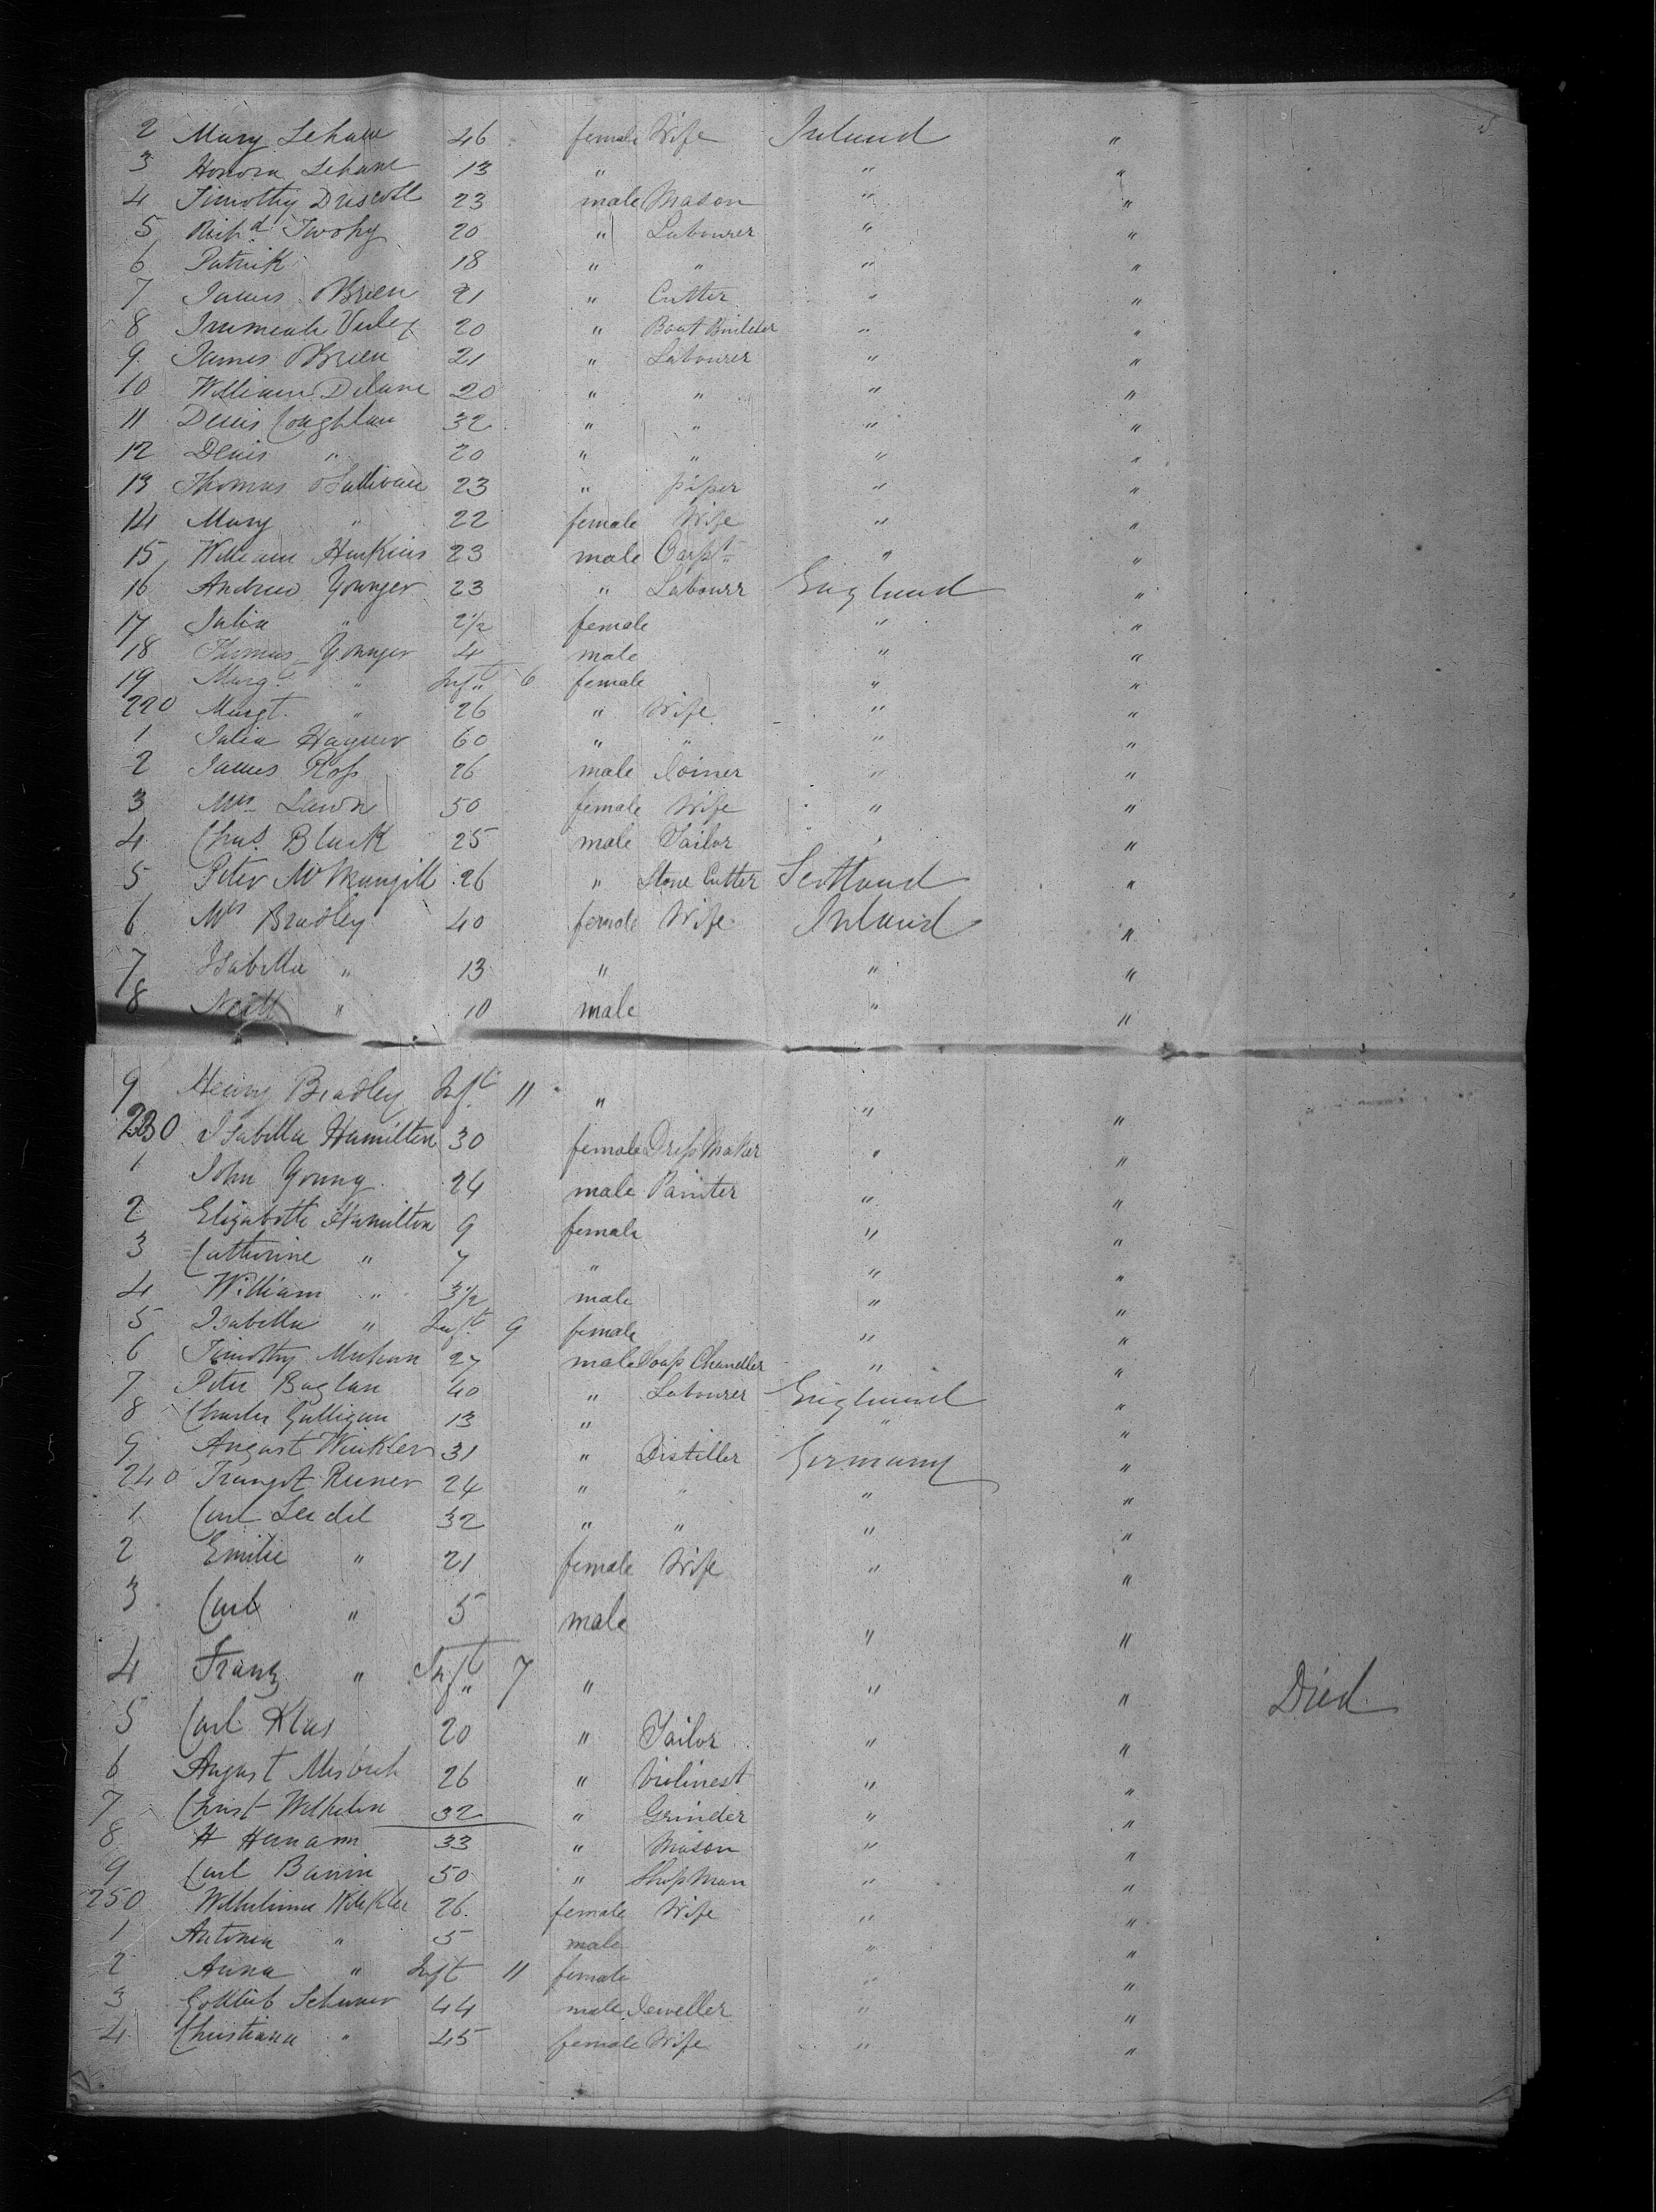 2 Mary Lehane 46 female Wife Ireland "
3 Honora Lehane 13 " " "
4 Timothy Driscoll 23 male Mason " "
5 Richd Twohy 20 " Labourer " "
6 Patrick 18 " " " "
7 James OBrien 21 " Cutter " "
8 20 " Boat Builder " "
9 James OBrien 21 " Labourer " "
10 William Delane 20 " " " "
11 Denis Coughlan 32 " " " "
12 Denis " 20 " " " "
13 Thomas OSullivan 23 " piper " "
14 Mary " 22 female Wife " "
15 William Harkins 23 male Carpt " "
16 Andrew Younger 23 " Labourr England "
17 Julia " 2½ female " "
18 Thomas Younger 4 male " "
19 Margt " Inft 6 female " "
220 Margt. " 26 " Wife " "
1 Julia Hagner 60 " " " "
2 James Ross 26 male Joiner " "
3 Mrs Lawn 50 female Wife " "
4 Chas. Black 25 male Tailor " "
5 Peter 26 " Stone Cutter Scotland "
6 Mrs Bradley 40 female Wife Ireland "
7 Isabella " 13 " " "
8 Neill " 10 male " "
9 Henry Bradley Inft 11 " " "
230 Isabella Hamilton 30 female Dress Maker " "
1 John Young 24 male Painter " "
2 Elizabeth Hamilton 9 female " "
3 Catherine " 7 " " "
4 William " 3½ male " "
5 Isabella " Inft 9 female " "
6 Timothy 27 male Soap Chandler " "
7 Peter Baglan 40 " Labourer England "
8 Charles Galligan 13 " " "
9 August Winkler 31 " Distiller Germany "
240 24 " " " "
1 Carl Seidel 32 " " " "
2 Emilie " 21 female Wife " "
3 Carl " 5 male " "
4 Franz " Inft 7 " " " Died
5 Carl Klus 20 " Tailor " "
6 August 26 " Violinest " "
7 Christ Wilhelm 32 " Grinder " "
8 H Hermann 33 " Mason " "
9 Carl 50 " Shop Man " "
250 Wilhelmina 26 female Wife " "
1 Antonia " 5 male " "
2 Anna " Inft 11 female " "
3 Gottlieb 44 male Jeweller " "
4 Christiana " 45 female Wife " "